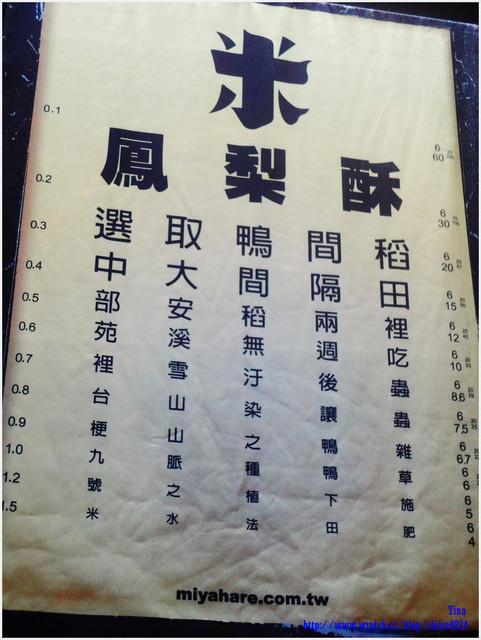 米
鳳梨酥
選中部苑裡台梗九號米
取大安溪雪山山脈之水
鴨間稻無汙染之種植法
間隔兩週後讓鴨鴨下田
稻田裡吃蟲蟲雜草施肥
0.1
0.2
0.3
0.4
0.5
0.6
0.7
0.8
0.9
1.0
1.2
.5
6
60
6
30
6
20
6
15
6
12
6
10
6
8.6
6
7.5
6
6.7
6
6
6
5
6
4
miyahare.com.tw
Tina